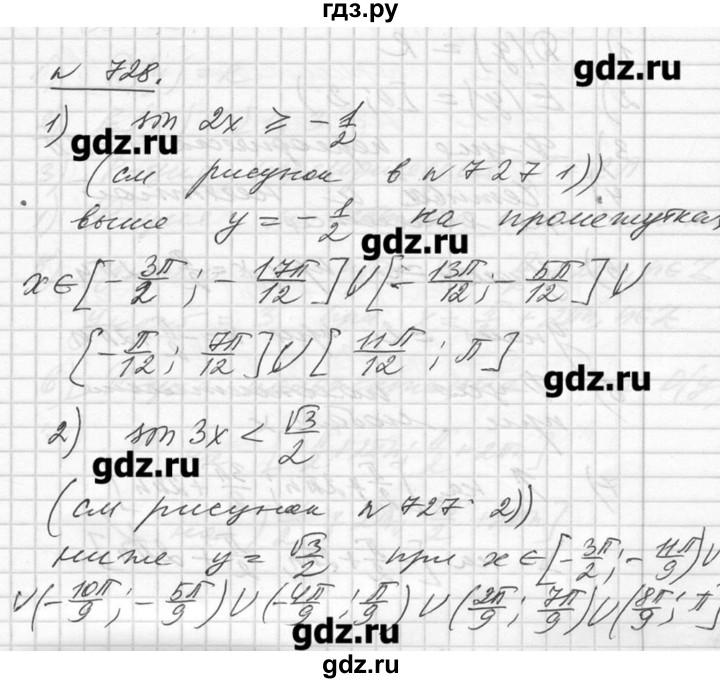 гдз.ру
№ 728.
gdz.ru
1) sin 2x ⩾ -1/2
gdz.ru
(см рисунок в №727 1))
выше y = -1/2 на промежутках
gdz.ru
x ∈ [-3π/2; -17π/12] ∪ [-13π/12; -5π/12] ∪
[-π/12; 7π/12] ∪ [11π/12; π]
gdz.ru
2) sin 3x < √3/2
gdz.ru
(см рисунок №727 2))
ниже y = √3/2 при x ∈ [-3π/2; -11π/9) ∪
∪ (-10π/9; -5π/9) ∪ (-4π/9; π/9) ∪ (2π/9; 7π/9) ∪ (8π/9; π]
gdz.ru
gdz.ru